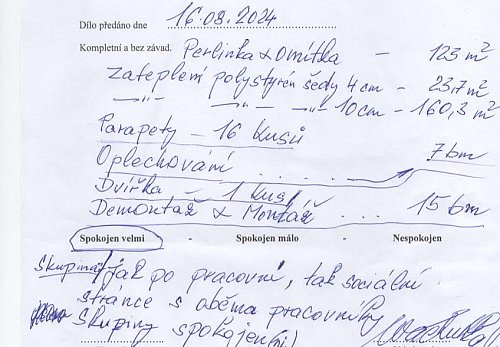 Dílo předáno dne 16.08.2024
Kompletní a bez závad. Perlinka & Omítka - 123 m²
Zateplení polystyrén šedy 4cm - 23,7 m²
—„— —„— 10cm - 160,3 m²
Parapety - 16 kusů
Oplechování . . . . . 7 bm
Dvířka - 1 kus
Demontáž & Montáž . . . 15 bm
Spokojen velmi - Spokojen málo - Nespokojen
Skupina jak po pracovní, tak sociální
stránce s oběma pracovníky
skupiny spokojen(ni)